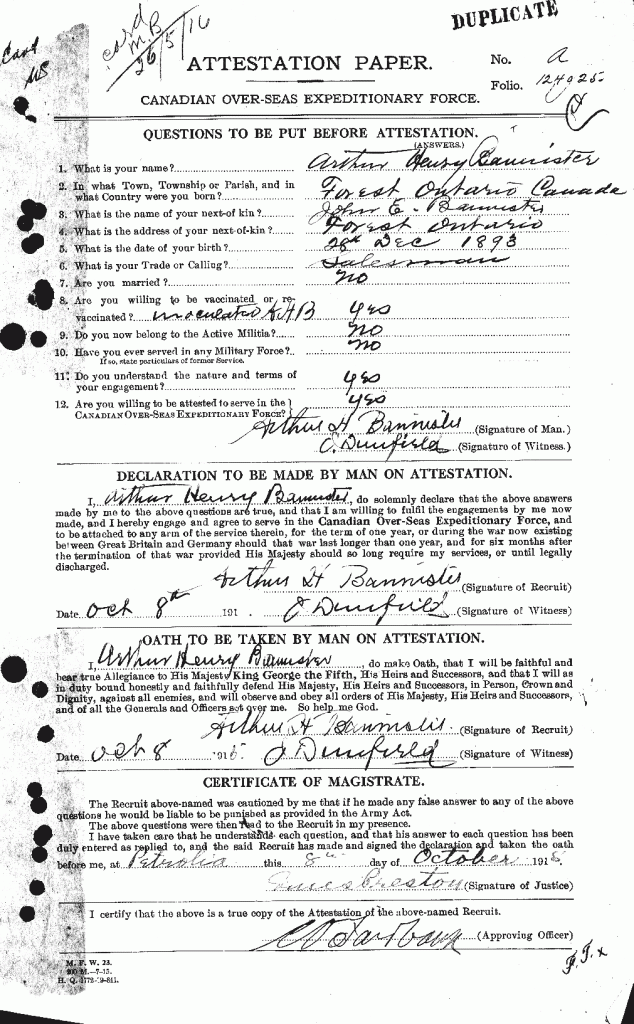 DUPLICATE
card
M.B
26/5/16
ATTESTATION PAPER.
No. A
Folio.
CANADIAN OVER-SEAS EXPEDITIONARY FORCE.
QUESTIONS TO BE PUT BEFORE ATTESTATION.
(ANSWERS.)
1. What is your name? Arthur Henry Bannister
2. In what Town, Township or Parish, and in what Country were you born? Forest Ontario Canada
3. What is the name of your next-of kin? John E. Bannister
4. What is the address of your next-of-kin? Forest Ontario
5. What is the date of your birth? 28th Dec 1893
6. What is your Trade or Calling? Salesman
7. Are you married? No
8. Are you willing to be vaccinated or re-
vaccinated? inoculated AHB yes
9. Do you now belong to the Active Militia? No
10. Have you ever served in any Military Force? No
If so, state particulars of former Service.
11. Do you understand the nature and terms of
your engagement? yes
12. Are you willing to be attested to serve in the
CANADIAN OVER-SEAS EXPEDITIONARY FORCE? yes
Arthur H Bannister (Signature of Man.)
(Signature of Witness.)
DECLARATION TO BE MADE BY MAN ON ATTESTATION.
I, Arthur Henry Bannister, do solemnly declare that the above answers
made by me to the above questions are true, and that I am willing to fulfil the engagements by me now
made, and I hereby engage and agree to serve in the Canadian Over-Seas Expeditionary Force, and
to be attached to any arm of the service therein, for the term of one year, or during the war now existing
between Great Britain and Germany should that war last longer than one year, and for six months after
the termination of that war provided His Majesty should so long require my services, or until legally
discharged.
Arthur H Bannister (Signature of Recruit)
Date Oct 8th 191 . (Signature of Witness)
OATH TO BE TAKEN BY MAN ON ATTESTATION.
I, Arthur Henry Bannister, do make Oath, that I will be faithful and
bear true Allegiance to His Majesty King George the Fifth, His Heirs and Successors, and that I will as
in duty bound honestly and faithfully defend His Majesty, His Heirs and Successors, in Person, Crown and
Dignity, against all enemies, and will observe and obey all orders of His Majesty, His Heirs and Successors,
and of all the Generals and Officers set over me. So help me God.
Arthur H Bannister (Signature of Recruit)
Date Oct 8 1915. (Signature of Witness)
CERTIFICATE OF MAGISTRATE.
The Recruit above-named was cautioned by me that if he made any false answer to any of the above
questions he would be liable to be punished as provided in the Army Act.
The above questions were then read to the Recruit in my presence.
I have taken care that he understands each question, and that his answer to each question has been
duly entered as replied to, and the said Recruit has made and signed the declaration and taken the oath
before me, at Petrolia this 8th day of October 1915.
(Signature of Justice)
I certify that the above is a true copy of the Attestation of the above-named Recruit.
(Approving Officer)
M. F. W. 23.
H. Q. 1772-39-841.